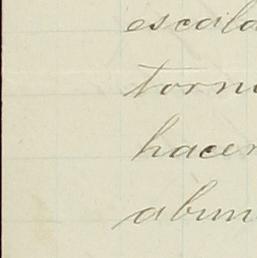 escala
torn
hacer
abun